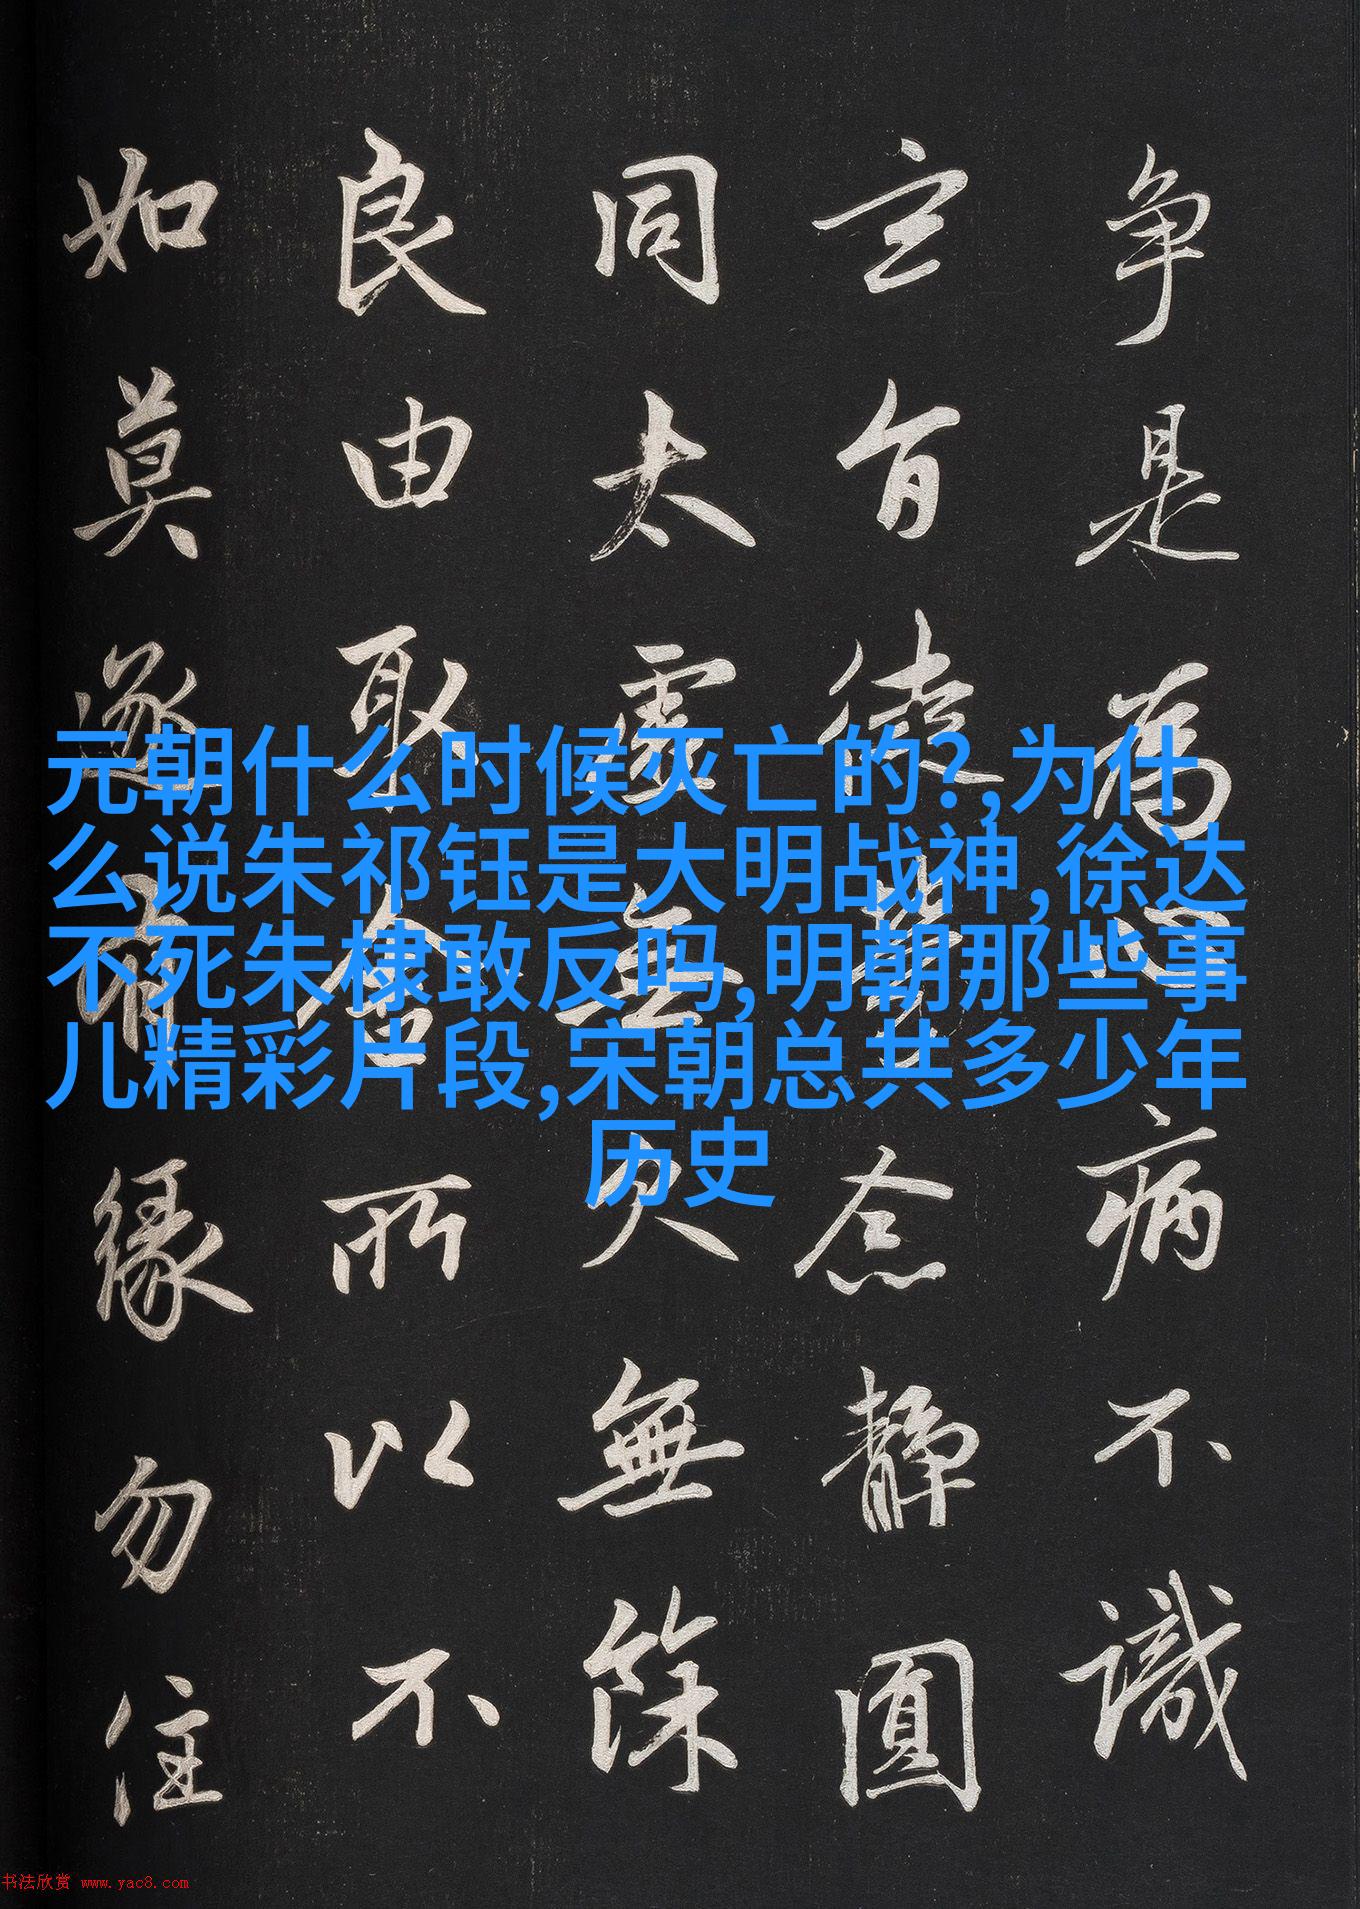 争是為心病不識
玄旨徒勞念靜圓
同太虛無欠無餘
良由取舍所以不
如莫逐有緣勿住
元朝什么时候灭亡的?,为什
么说朱祁钰是大明战神,徐达
不死朱棣敢反吗,明朝那些事
儿精彩片段,宋朝总共多少年
历史
书法欣赏 www.yac8.com